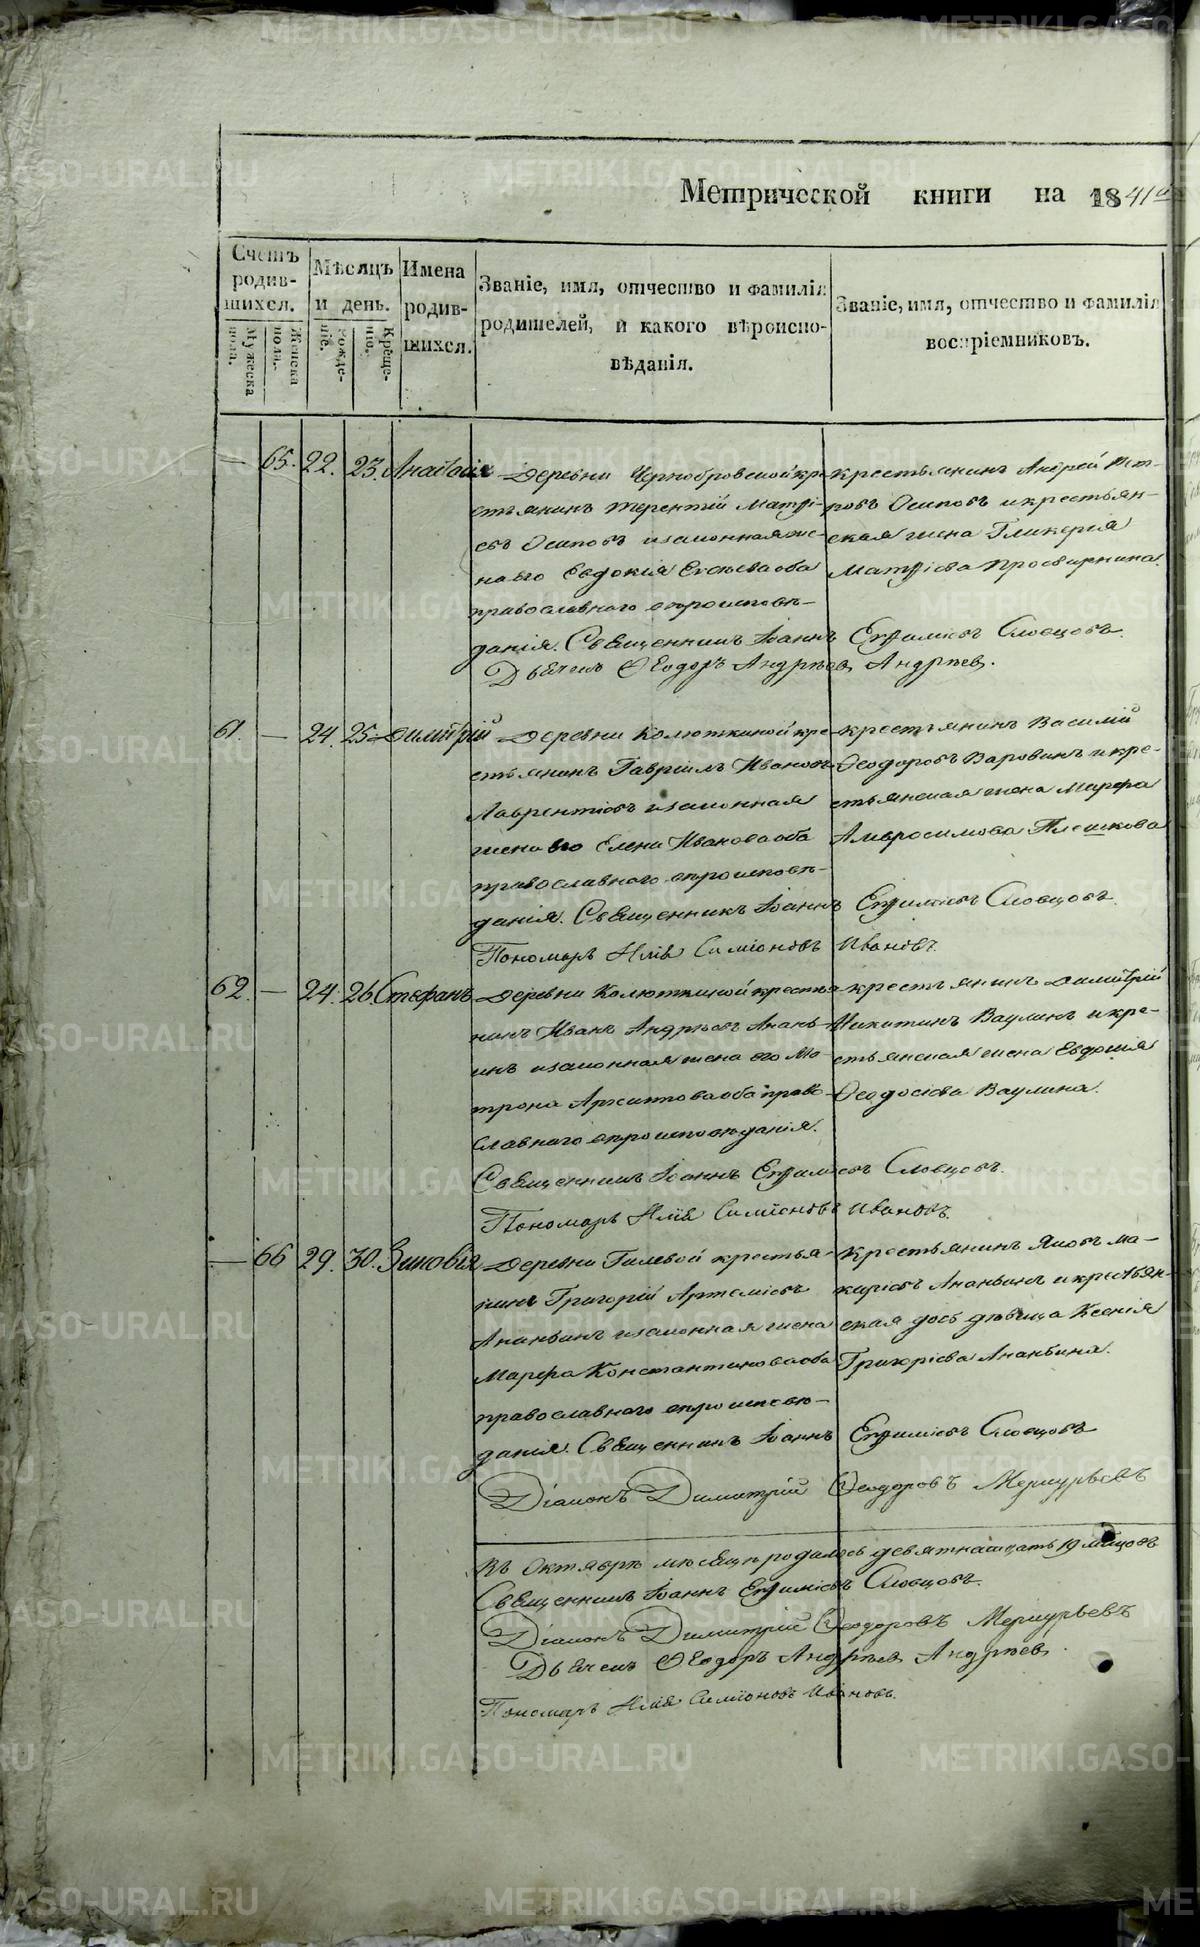 Метрической книги на 1841й
Счетъ родив-шихся.
Мужеска пола.
Женска пола.
Мѣсяцъ и день.
рожде-ніе.
Креще-ніе.
Имена родив-шихся.
Званіе, имя, отчество и фамилія
родителей, и какого вѣроиспо-
вѣданія.
Званіе, имя, отчество и фамилія
воспріемниковъ.
— 65. 22. 23.
Деревни Чернобровской кре-
стьянинъ Терентій Матѳі-
евъ Осиповъ и законная же-
на его Евдокія Евсѣева оба
православнаго вѣроисповѣ-
данія. Священникъ Іоаннъ Ефимьевъ Словцовъ.
Дьячекъ Ѳеодоръ Андрѣев Андрѣев.
крестьянинъ Андрей Пет-
ровъ Осиповъ и крестьян-
ская жена Гликерія
Матѳіева Просвирнина.
61. — 24. 25. Димитрій
Деревни Колюткиной кре-
стьянинъ Гавріилъ Ивановъ
Лаврентіевъ и законная
жена его Елена Иванова оба
православнаго вѣроисповѣ-
данія. Священникъ Іоаннъ Ефимьевъ Словцовъ.
Пономарь Илія Симіоновъ Ивановъ.
крестьянинъ Василій
Ѳеодоровъ Варовинъ и кре-
стьянская жена Марфа
Амвросимова Плешкова
62. — 24. 26. Стефанъ
Деревни Колюткиной крестья-
нинъ Иванъ Андрѣевъ Анань-
инъ и законная жена его Ма-
трона Архипова оба право-
славнаго вѣроисповѣданія.
Священникъ Іоаннъ Ефимьевъ Словцовъ.
Пономарь Илія Симіоновъ Ивановъ.
крестьянинъ Димитрій
Никитинъ Ваулинъ и кре-
стьянская жена Евдокія
Ѳеодосіева Ваулина.
— 66 29. 30. Зиновія
Деревни Гилевой крестья-
нинъ Григорій Артеміевъ
Ананьинъ и законная жена
Марфа Константинова оба
православнаго вѣроисповѣ-
данія. Священникъ Іоаннъ Ефимьевъ Словцовъ
Діаконъ Димитрій Ѳеодоровъ Меркурьевъ
Крестьянинъ Яковъ Ма-
каріевъ Ананьинъ и крестьян-
ская Ксенія
Григоріева Ананьина.
Въ Октябрѣ мѣсяцѣ родилось девятнатцать 19 младцовъ
Священникъ Іоаннъ Ефимьевъ Словцовъ.
Діаконъ Димитрій Ѳеодоровъ Меркурьевъ
Дьячекъ Ѳеодоръ Андрѣев Андрѣев.
Пономарь Илія Симіоновъ Ивановъ.